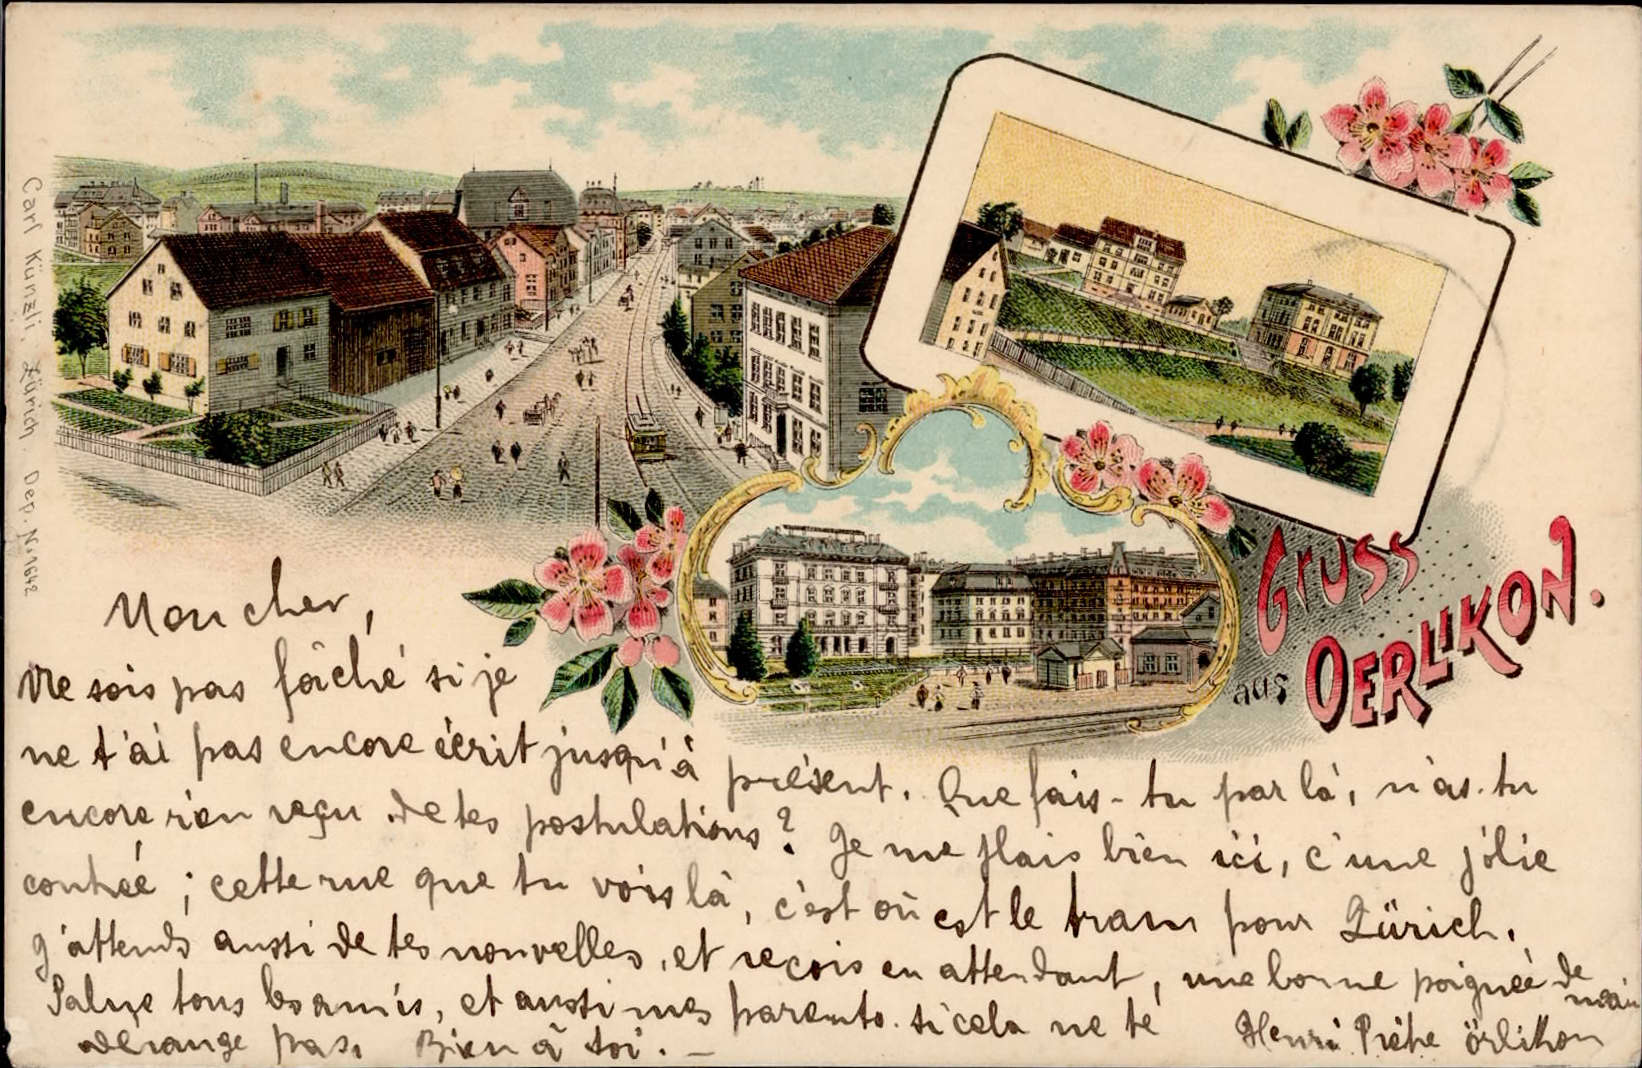 Carl Künzli, Zürich. Dep. No 1642
Gruss
aus OERLIKON.
Mon cher,
Ne sois pas fâché si je
ne t'ai pas encore écrit jusqu'à présent. Que fais-tu par là, n'as-tu
encore rien reçu de tes postulations? Je me plais bien ici, c'une jolie
contrée; cette rue que tu vois là, c'est où est le tram pour Zürich.
J'attends aussi de tes nouvelles, et reçois en attendant, une bonne poignée de main
Salue tous les amis, et aussi mes parents. si cela ne te
dérange pas. Bien à toi. — Henri örlikon